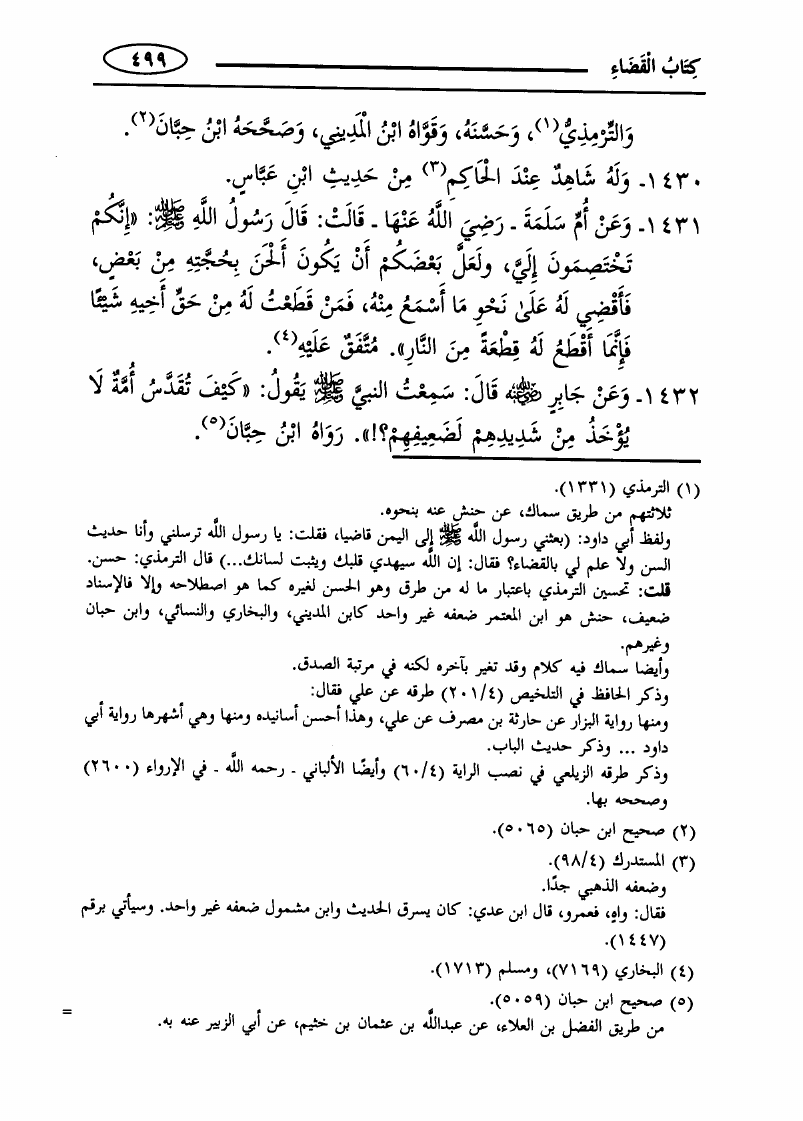 كِتَابُ الْقَضَاءِ ٤٩٩
وَالتِّرْمِذِيُّ(١)، وَحَسَّنَهُ، وَقَوَّاهُ ابْنُ الْمَدِينِي، وَصَحَّحَهُ ابْنُ حِبَّانَ(٢).
١٤٣٠ـ وَلَهُ شَاهِدٌ عِنْدَ الْحَاكِمِ(٣) مِنْ حَدِيثِ ابْنِ عَبَّاسٍ.
١٤٣١ـ وَعَنْ أُمِّ سَلَمَةَ ـ رَضِيَ اللَّهُ عَنْهَا ـ قَالَتْ: قَالَ رَسُولُ اللَّهِ ﷺ: «إِنَّكُمْ
تَخْتَصِمُونَ إِلَيَّ، ولَعَلَّ بَعْضَكُمْ أَنْ يَكُونَ أَلْحَنَ بِحُجَّتِهِ مِنْ بَعْضٍ،
فَأَقْضِي لَهُ عَلَىٰ نَحْوِ مَا أَسْمَعُ مِنْهُ، فَمَنْ قَطَعْتُ لَهُ مِنْ حَقِّ أَخِيهِ شَيْئًا
فَإِنَّمَا أَقْطَعُ لَهُ قِطْعَةً مِنَ النَّارِ». مُتَّفَقٌ عَلَيْهِ(٤).
١٤٣٢ـ وَعَنْ جَابِرٍ رضي الله عنه قَالَ: سَمِعْتُ النبيَّ ﷺ يَقُولُ: «كَيْفَ تُقَدَّسُ أُمَّةٌ لَا
يُؤْخَذُ مِنْ شَدِيدِهِمْ لَضَعِيفِهِمْ؟!». رَوَاهُ ابْنُ حِبَّانَ(٥).
(١) الترمذي (١٣٣١).
ثلاثتهم من طريق سماك، عن حنش عنه بنحوه.
ولفظ أبي داود: (بعثني رسول اللَّه ﷺ إلى اليمن قاضيا، فقلت: يا رسول اللَّه ترسلني وأنا حديث
السن ولا علم لي بالقضاء؟ فقال: إن اللَّه سيهدي قلبك ويثبت لسانك...) قال الترمذي: حسن.
قلت: تحسين الترمذي باعتبار ما له من طرق وهو الحسن لغيره كما هو اصطلاحه وإلا فالإسناد
ضعيف، حنش هو ابن المعتمر ضعفه غير واحد كابن المديني، والبخاري والنسائي، وابن حبان
وغيرهم.
وأيضا سماك فيه كلام وقد تغير بآخره لكنه في مرتبة الصدق.
وذكر الحافظ في التلخيص (٢٠١/٤) طرقه عن علي فقال:
ومنها رواية البزار عن حارثة بن مصرف عن علي، وهذا أحسن أسانيده ومنها وهي أشهرها رواية أبي
داود ... وذكر حديث الباب.
وذكر طرقه الزيلعي في نصب الراية (٦٠/٤) وأيضًا الألباني ـ رحمه اللَّه ـ في الإرواء (٢٦٠٠)
وصححه بها.
(٢) صحيح ابن حبان (٥٠٦٥).
(٣) المستدرك (٩٨/٤).
وضعفه الذهبي جدًا.
فقال: واهٍ، فعمرو، قال ابن عدي: كان يسرق الحديث وابن مشمول ضعفه غير واحد. وسيأتي برقم
(١٤٤٧).
(٤) البخاري (٧١٦٩)، ومسلم (١٧١٣).
(٥) صحيح ابن حبان (٥٠٥٩).
من طريق الفضل بن العلاء، عن عبداللَّه بن عثمان بن خثيم، عن أبي الزبير عنه به. =